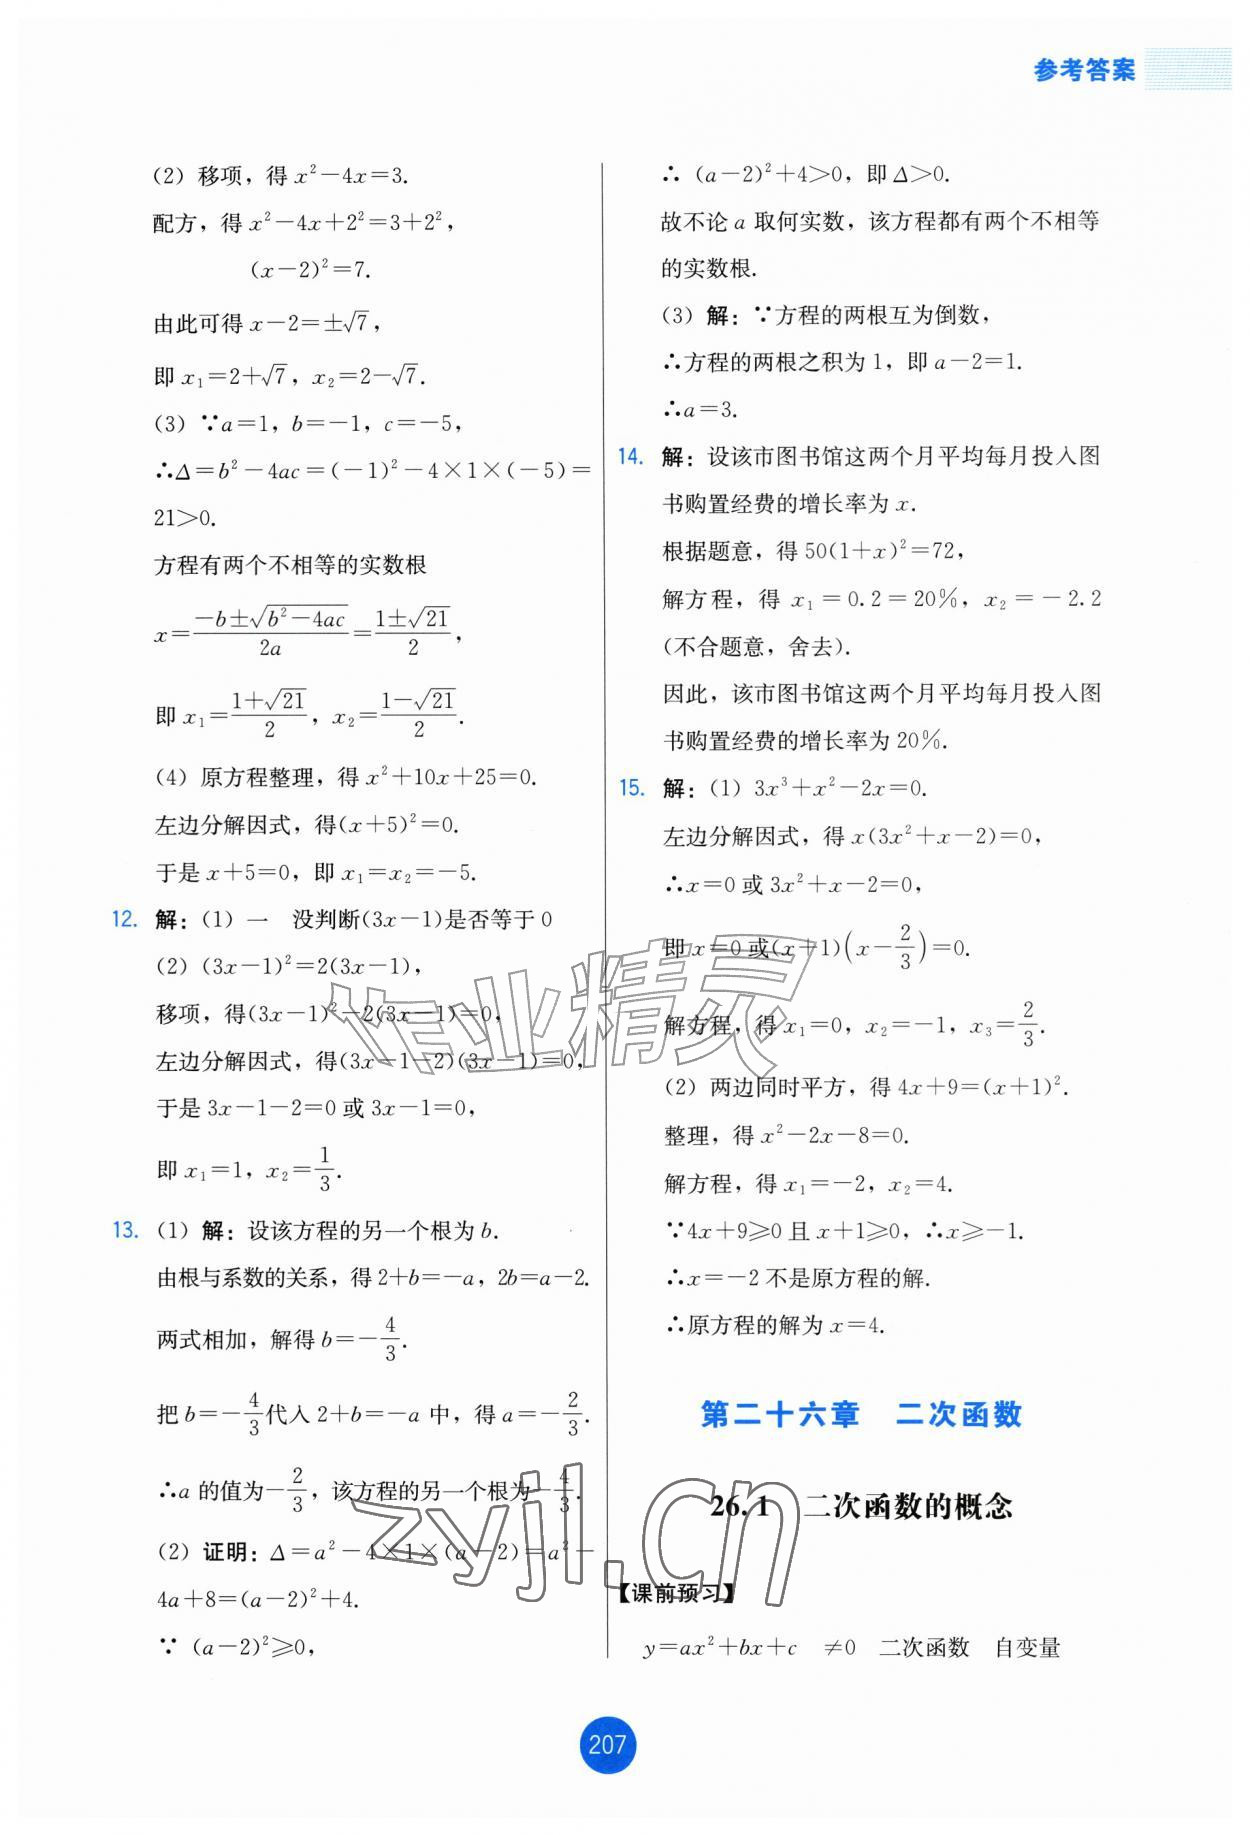 参考答案
(2) 移项，得 x²－4x＝3.
配方，得 x²－4x＋2²＝3＋2²，
(x－2)²＝7.
由此可得 x－2＝±√7，
即 x₁＝2＋√7，x₂＝2－√7.
(3) ∵a＝1，b＝－1，c＝－5，
∴Δ＝b²－4ac＝(－1)²－4×1×(－5)＝
21＞0.
方程有两个不相等的实数根
x＝(－b±√(b²－4ac))/2a＝(1±√21)/2，
即 x₁＝(1＋√21)/2，x₂＝(1－√21)/2.
(4) 原方程整理，得 x²＋10x＋25＝0.
左边分解因式，得(x＋5)²＝0.
于是 x＋5＝0，即 x₁＝x₂＝－5.
12. 解：(1) 一　没判断(3x－1)是否等于 0
(2) (3x－1)²＝2(3x－1)，
移项，得(3x－1)²－2(3x－1)＝0，
左边分解因式，得(3x－1－2)(3x－1)＝0，
于是 3x－1－2＝0 或 3x－1＝0，
即 x₁＝1，x₂＝1/3.
13. (1) 解：设该方程的另一个根为 b.
由根与系数的关系，得 2＋b＝－a，2b＝a－2.
两式相加，解得 b＝－4/3.
把 b＝－4/3代入 2＋b＝－a 中，得 a＝－2/3.
∴a 的值为－2/3，该方程的另一个根为－4/3.
(2) 证明：Δ＝a²－4×1×(a－2)＝a²－
4a＋8＝(a－2)²＋4.
∵ (a－2)²≥0，
∴ (a－2)²＋4＞0，即 Δ＞0.
故不论 a 取何实数，该方程都有两个不相等
的实数根.
(3) 解：∵方程的两根互为倒数，
∴方程的两根之积为 1，即 a－2＝1.
∴a＝3.
14. 解：设该市图书馆这两个月平均每月投入图
书购置经费的增长率为 x.
根据题意，得 50(1＋x)²＝72，
解方程，得 x₁＝0.2＝20％，x₂＝－2.2
(不合题意，舍去).
因此，该市图书馆这两个月平均每月投入图
书购置经费的增长率为 20％.
15. 解：(1) 3x³＋x²－2x＝0.
左边分解因式，得 x(3x²＋x－2)＝0，
∴x＝0 或 3x²＋x－2＝0，
即 x＝0 或(x＋1)(x－2/3)＝0.
解方程，得 x₁＝0，x₂＝－1，x₃＝2/3.
(2) 两边同时平方，得 4x＋9＝(x＋1)².
整理，得 x²－2x－8＝0.
解方程，得 x₁＝－2，x₂＝4.
∵4x＋9≥0 且 x＋1≥0，∴x≥－1.
∴x＝－2 不是原方程的解.
∴原方程的解为 x＝4.
第二十六章　二次函数
26.1　二次函数的概念
【课前预习】
y＝ax²＋bx＋c　≠0　二次函数　自变量
207
作业精灵
zyjl.cn